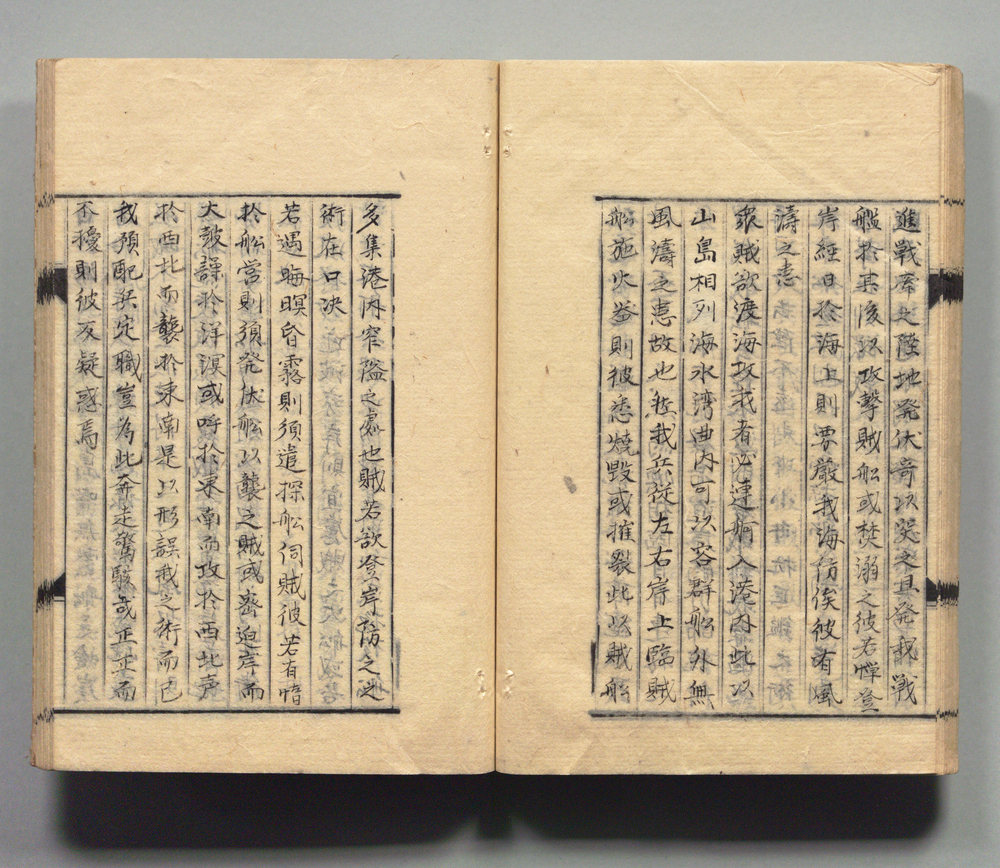 進戰卒之陸地発伏奇以突之且発我戦
艦於其後以攻撃賊船或焚溺之彼若憚登
岸經日於海上則要嚴我海防俟彼有風
濤之恚
衆賊欲渡海攻我者必連舸入港内此以
山島相列海水湾曲内可以容群船外無
風濤之恚故也我兵従左右岸上臨賊
船施火器則彼悉燒毀或摧裂此以賊船
多集港内窄隘之處也賊若欲登岸防之之
術在口决
若遇晦暝昏霧則須遣探船伺賊彼若有
於船営則須発伏船以襲之賊或密迫岸而
大皷譟於洋溟或呼於東南而攻於西北声
於西北而襲於東南是以形誤我之術而已
我預配兵定職豈為此奔走驚駭哉正正而
不擾則彼反疑惑焉